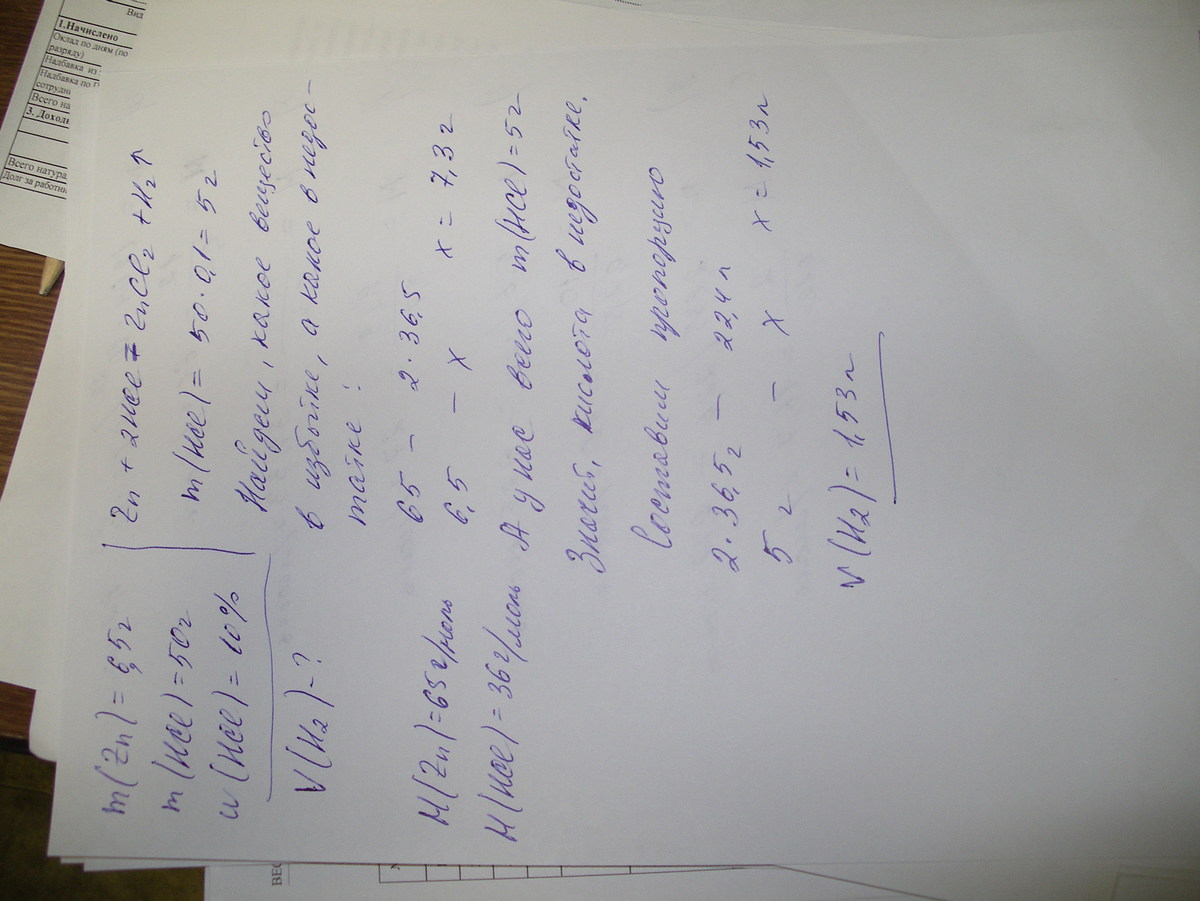 m(Zn) = 6,5г
m(HCl) = 50г
w(HCl) = 10%
V(H₂) - ?
M(Zn) = 65г/моль
M(HCl) = 36г/моль
Zn + 2HCl = ZnCl₂ + H₂↑
m(HCl) = 50·0,1 = 5г
Найдем, какое вещество
в избытке, а какое в недос-
татке:
65 – 2·36,5
6,5 – x x = 7,3г
А у нас всего m(HCl) = 5г
Значит, кислота в недостатке.
Составим пропорцию
2·36,5г – 22,4л
5г – x x = 1,53л
V(H₂) = 1,53л
Вид
1.Начислено
Оклад по дням (по
разряду)
Надбавка из
Надбавка по
сотрудн
Всего на
3. Доход
Всего натура
Долг за работн
ВЕС